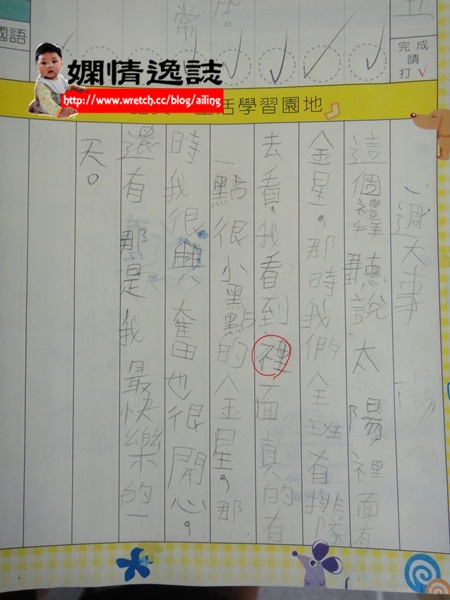 國語
常
完成
請
打✓
嫻情逸誌
http://www.wretch.cc/blog/ailing
活學習園地
一週大事
這個禮拜聽說太陽裡面有
金星，那時我們全班有排隊
去看，我看到裡面真的有
一點很小黑點的金星，那
時我很興奮也很開心，
還有那是我最快樂的一
天。